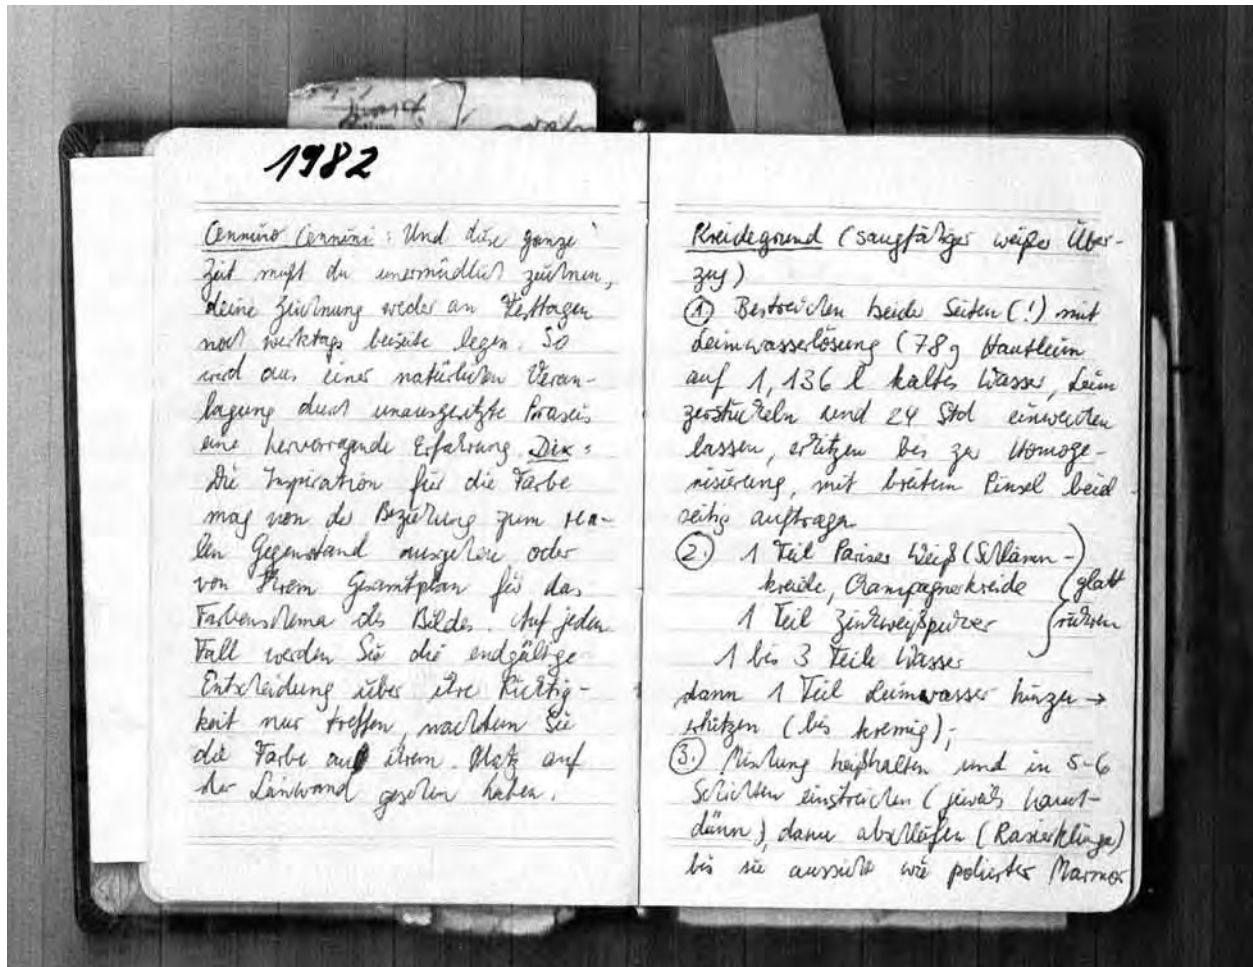 1982
Cennino Cennini: Und diese ganze
Zeit mußt du unermüdlich zeichnen,
deine Zeichnung weder an Festtagen
noch werktags beiseite legen. So
wird aus einer natürlichen Veran-
lagung durch unausgesetzte Praxis
eine hervorragende Erfahrung. Dix:
Die Inspiration für die Farbe
mag von der Beziehung zum rea-
len Gegenstand ausgehen oder
von Ihrem Gesamtplan für das
Farbenschema des Bildes. Auf jeden
Fall werden Sie die endgültige
Entscheidung über ihre Richtig-
keit nur treffen, nachdem Sie
die Farbe auf ihrem Platz auf
der Leinwand gesehen haben.
Kreidegrund (saugfähiger weißer Über-
zug)
1. Bestreichen beider Seiten (!) mit
Leimwasserlösung (78 g Hautleim
auf 1,136 l kaltes Wasser, Leim
zerstückeln und 24 Std einweichen
lassen, erhitzen bis zur Homoge-
nisierung, mit breitem Pinsel beid
seitig auftragen
2. 1 Teil Pariser Weiß (Schlämm-
kreide, Champagnerkreide glatt
1 Teil Zinkweißpulver rühren
1 bis 3 Teile Wasser
dann 1 Teil Leimwasser hinzu →
erhitzen (bis kremig);
3. Mischung heißhalten und in 5-6
Schichten einstreichen (jeweils haut-
dünn), dann abschleifen (Rasierklinge)
bis sie aussieht wie polierter Marmor